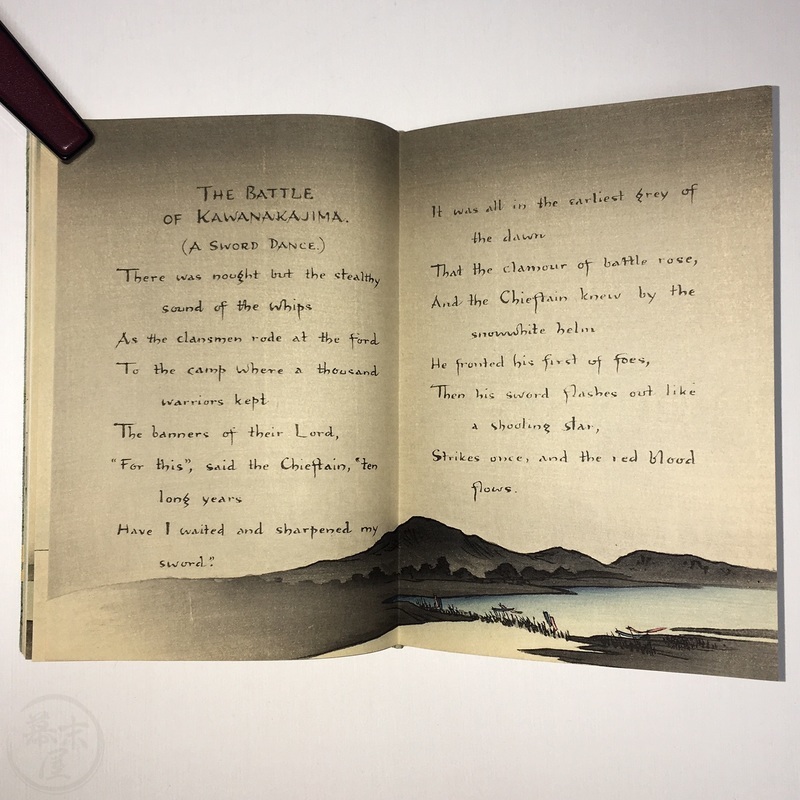 THE BATTLE
OF KAWANAKAJIMA.
(A SWORD DANCE.)
There was nought but the stealthy
sound of the whips
As the clansmen rode at the ford
To the camp where a thousand
warriors kept
The banners of their Lord,
"For this", said the Chieftain, "ten
long years
Have I waited and sharpened my
sword."
It was all in the earliest grey of
the dawn
That the clamour of battle rose,
And the Chieftain knew by the
snowwhite helm
He fronted his first of foes,
Then his sword flashes out like
a shooting star,
Strikes once, and the red blood
flows.
幕末
屋